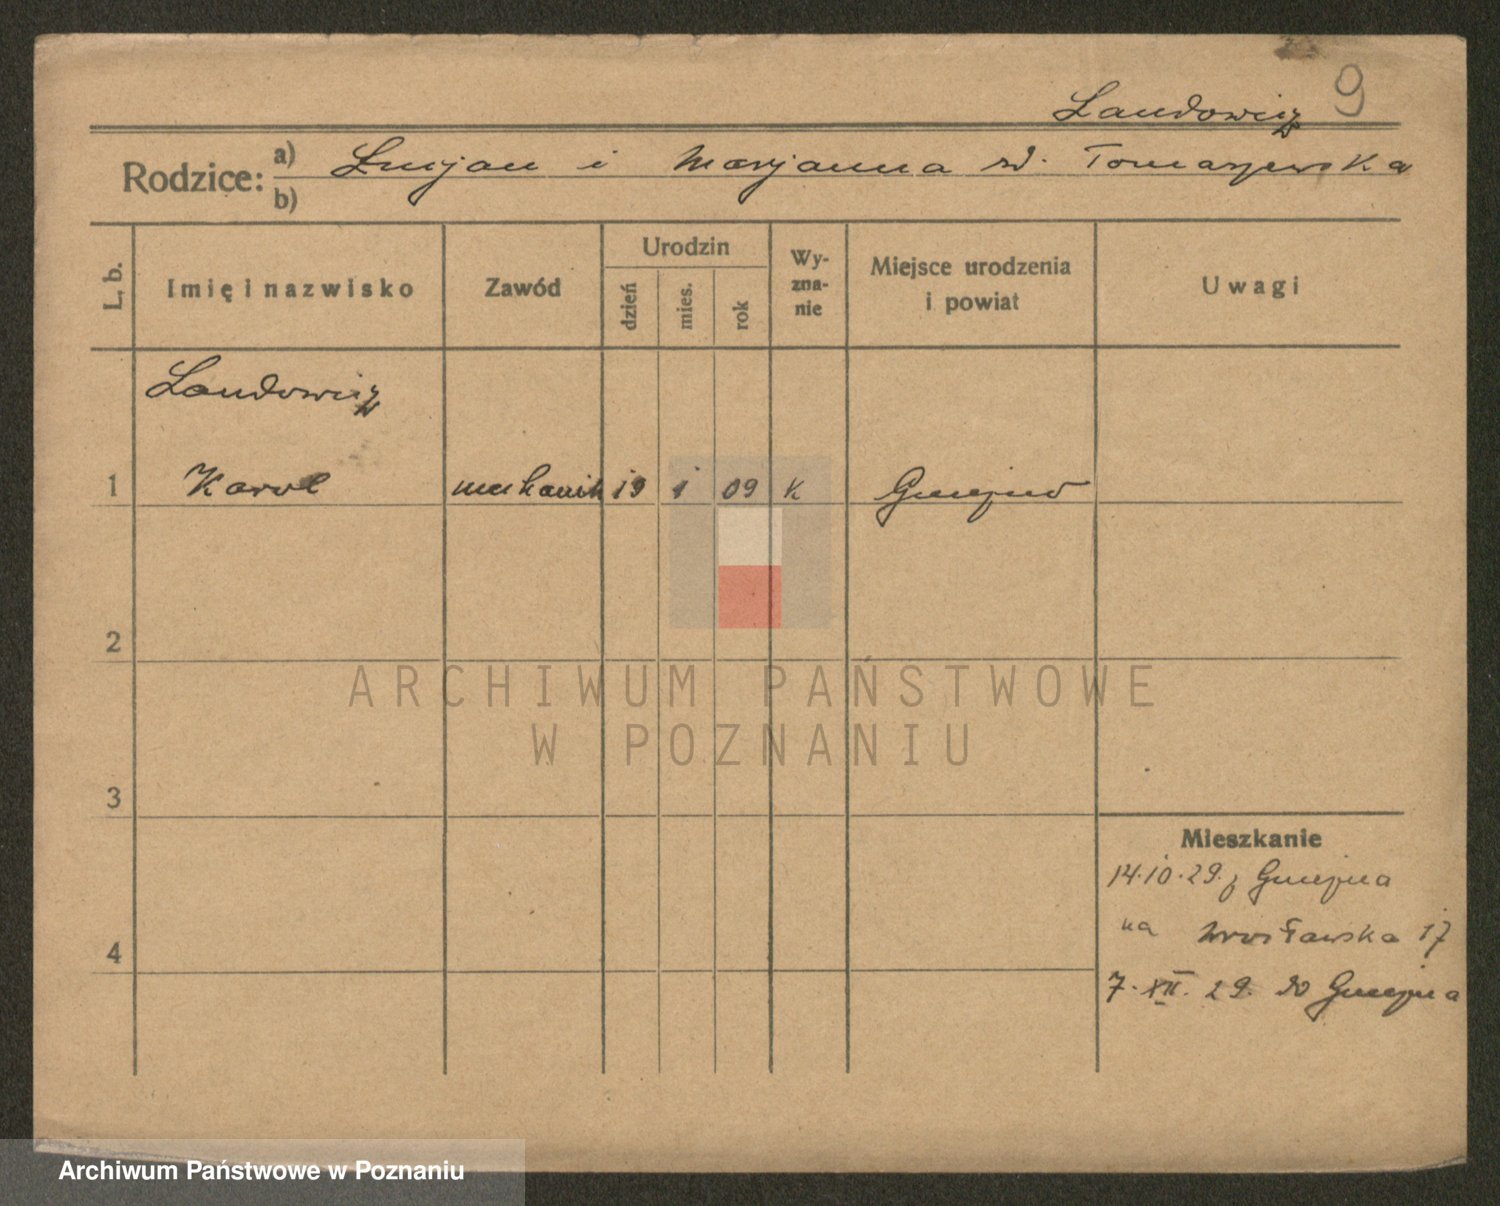 9
Landowicz
Rodzice: a) Lucjan i Marjanna zd. Tomaszewska
b)
L. b.
Imię i nazwisko
Zawód
Urodzin
dzień
mies.
rok
Wy-
zna-
nie
Miejsce urodzenia
i powiat
Uwagi
Landowicz
1 Karol mechanik 19 1 09 K Gniezno
2
3
4
Mieszkanie
14.10.29. z Gniezna
na Wrocławska 17
7. XII. 29. do Gniezna
ARCHIWUM PAŃSTWOWE
W POZNANIU
Archiwum Państwowe w Poznaniu